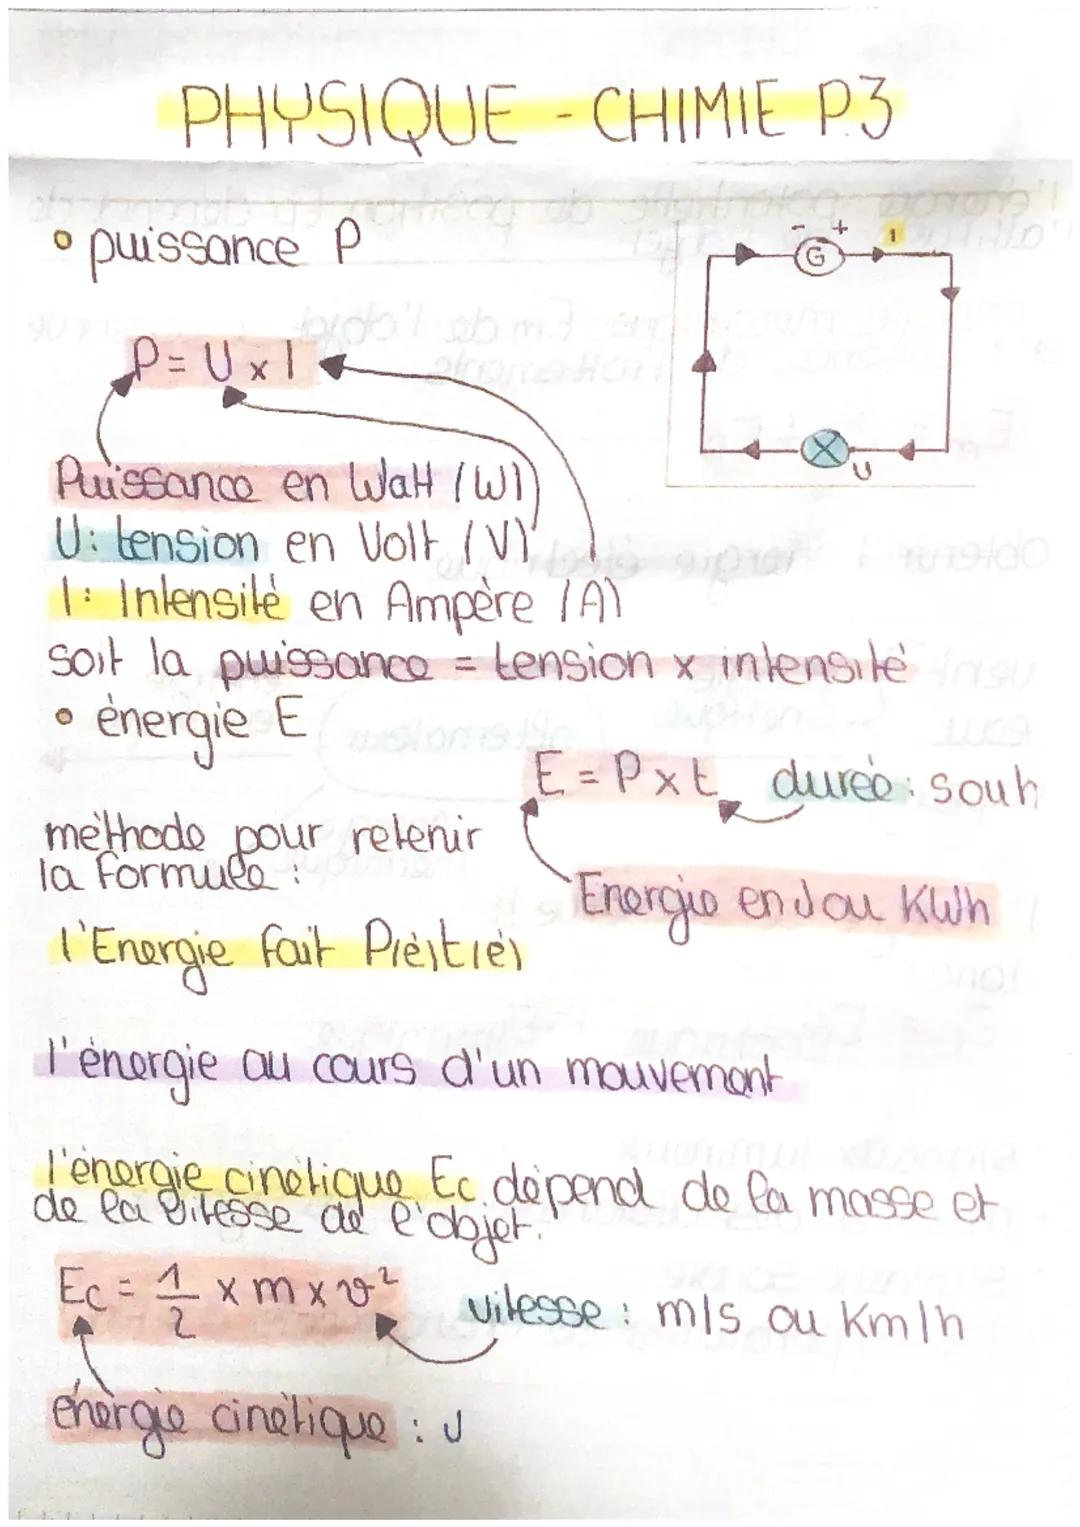 PHYSIQUE - CHIMIE P.3
• puissance P
- +
G
I
P = U x I
U
Puissance en Watt (W)
U: tension en Volt (V)
I: Intensité en Ampère (A)
soit la puissance = tension x intensité
• énergie E
E = P x t
durée : s ou h
méthode pour retenir
la formule :
Energie en J ou KWh
l'Energie fait P(é)t(é)
l'énergie au cours d'un mouvement
l'énergie cinétique Ec dépend de la masse et
de la vitesse de l'objet.
Ec = 1/2 x m x v²
vitesse : m/s ou Km/h
énergie cinétique : J